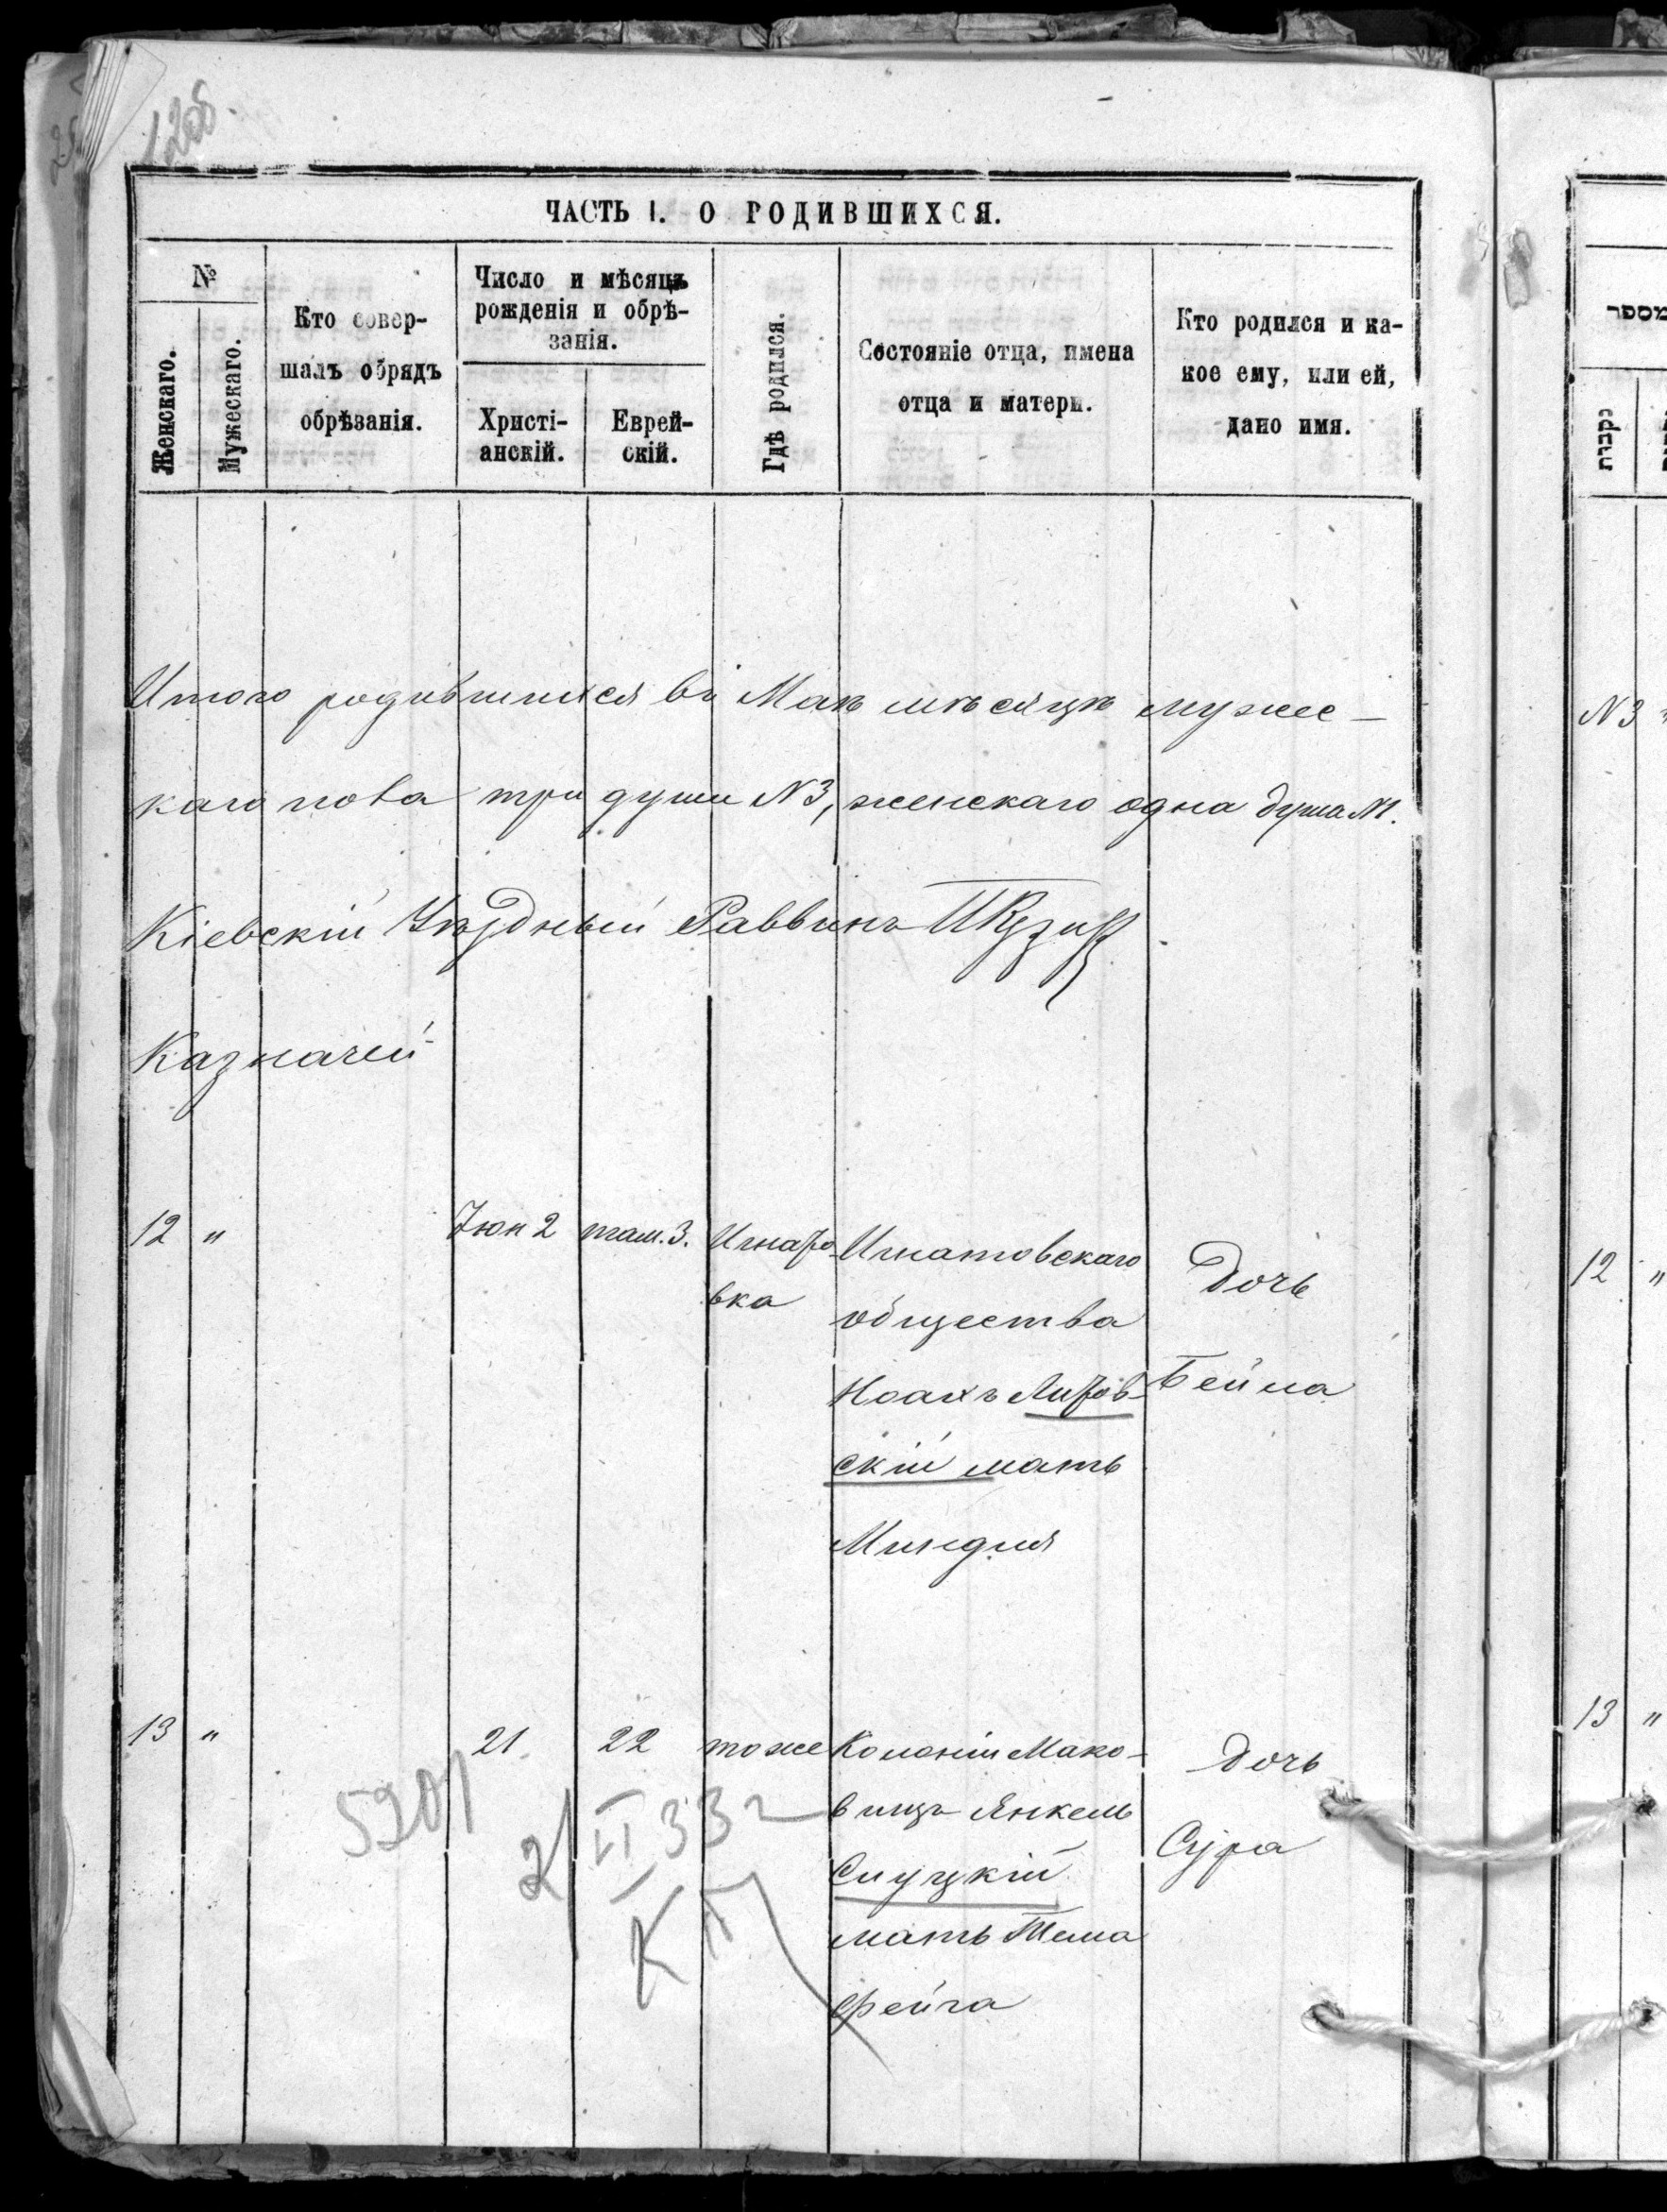 1208.
ЧАСТЬ I. О РОДИВШИХСЯ.
№
Женскаго.
Мужескаго.
Кто совер-
шалъ обрядъ
обрѣзанія.
Число и мѣсяцъ
рожденія и обрѣ-
занія.
Христі-
анскій.
Еврей-
скій.
Гдѣ родился.
Состояніе отца, имена
отца и матери.
Кто родился и ка-
кое ему, или ей,
дано имя.
Итого родившихся въ Маѣ мѣсяцѣ мужес-
каго пола три души №3, женскаго одна душа №1.
Кіевскій Уѣздный Раввинъ
Казначей
12 " Іюн 2 там. 3. Игнато- Игнатовскаго Дочь
вка общества
Ноахъ Бейла
скій мать
Миндля
13 " 21 22 тоже Колоніи Мако- дочь
вищъ Янкель
Слуцкій Сура
мать Тема
Фейга
5201
21 II 33 г
מספר
נקבות
N 3
12 "
13 "